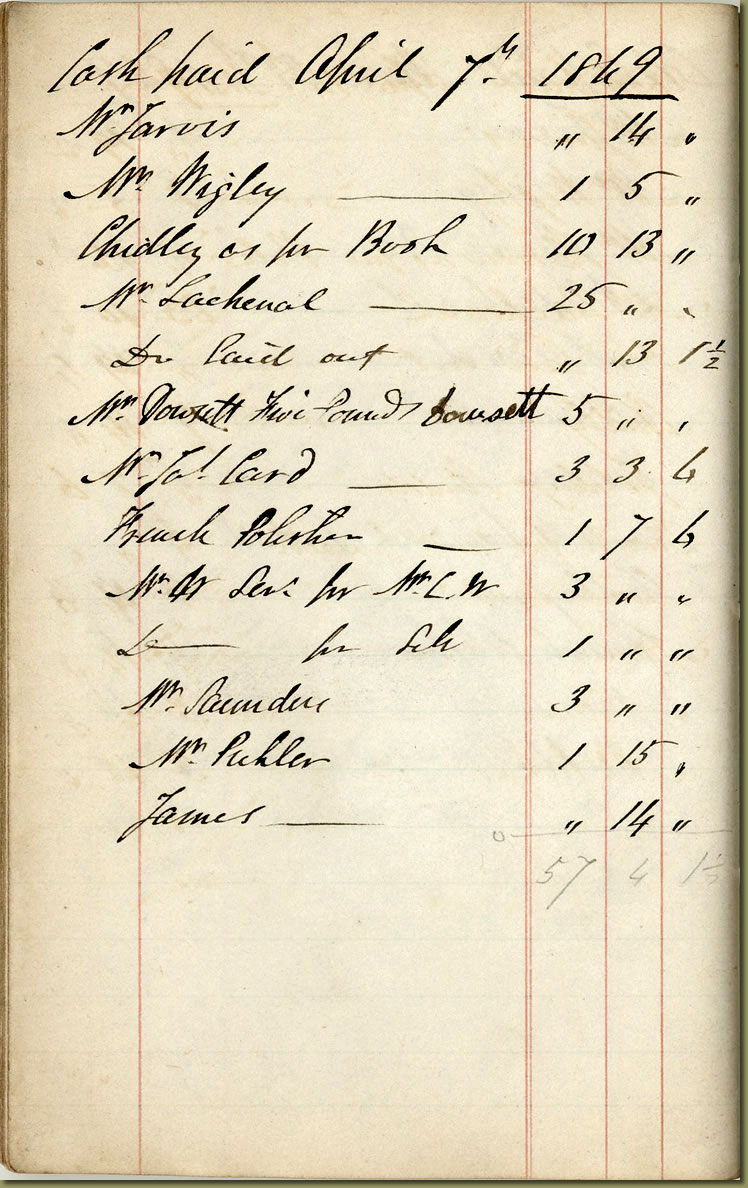 Cash paid April 7th 1869
Mr Jarvis " 14 "
Mr Wigley — 1 5 "
Chidley as per Book 10 13 "
Mr Lachenal — 25 " "
Do laid out " 13 1½
Mr Dowsett Five Pounds Dowsett 5 " "
Mr Card — 3 3 6
French Polisher — 1 7 6
Mr W Senr for Mr C.W 3 " "
Do — for Self 1 " "
Mr Saunders 3 " "
Mr 1 15 "
James — " 14 "
57 4 1½